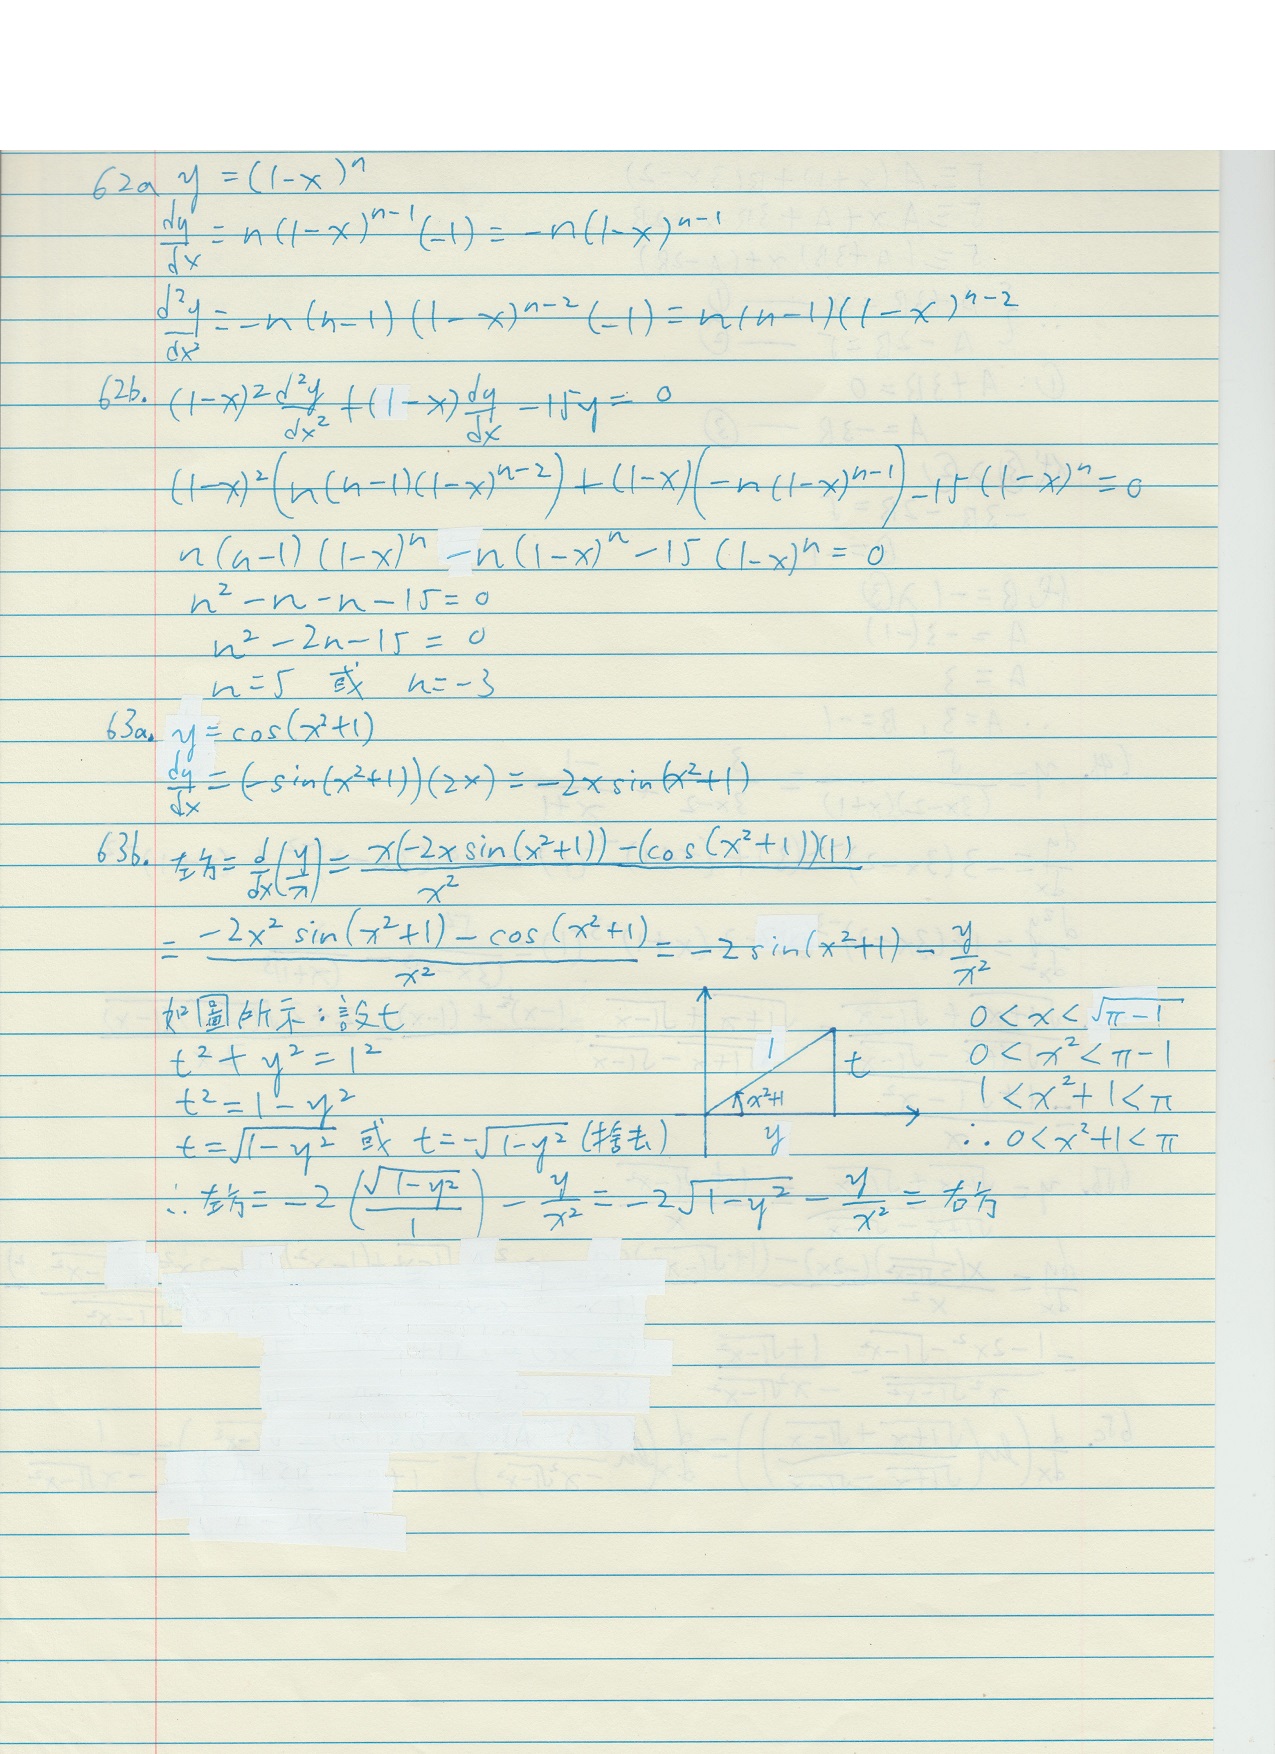 62a y = (1-x)ⁿ
dy/dx = n(1-x)ⁿ⁻¹(-1) = -n(1-x)ⁿ⁻¹
d²y/dx² = -n(n-1)(1-x)ⁿ⁻²(-1) = n(n-1)(1-x)ⁿ⁻²
62b. (1-x)² d²y/dx² + (1-x) dy/dx - 15y = 0
(1-x)²(n(n-1)(1-x)ⁿ⁻²) + (1-x)(-n(1-x)ⁿ⁻¹) - 15(1-x)ⁿ = 0
n(n-1)(1-x)ⁿ - n(1-x)ⁿ - 15(1-x)ⁿ = 0
n² - n - n - 15 = 0
n² - 2n - 15 = 0
n = 5 或 n = -3
63a. y = cos(x²+1)
dy/dx = (-sin(x²+1))(2x) = -2x sin(x²+1)
63b. 左方 = d/dx(y/x) = x(-2x sin(x²+1)) - (cos(x²+1))(1) / x²
= -2x² sin(x²+1) - cos(x²+1) / x² = -2 sin(x²+1) - y/x²
如圖所示:設t
t² + y² = 1²
t² = 1 - y²
t = √(1-y²) 或 t = -√(1-y²) (捨去)
1
t
x²+1
y
0 < x < √(π-1)
0 < x² < π-1
1 < x²+1 < π
∴ 0 < x²+1 < π
∴ 左方 = -2(√(1-y²)/1) - y/x² = -2√(1-y²) - y/x² = 右方